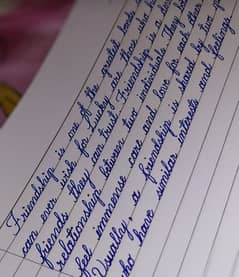 Friendship is one of the greatest bonds
can ever wish for. Lucky are those who ha
friends they can trust. Friendship is a de
relationship between two individuals. They bo
feel immense care and love for each other
Usually, a friendship is shared by two pe
who have similar interests and feelings